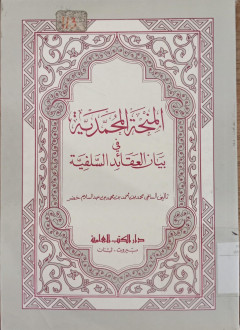 المنحة المحمدية
في
بيان العقائد السلفية
تأليف السلفي محمد بن أحمد بن محمد بن عبد السلام خضر
دار الكتب العلمية
بيروت - لبنان